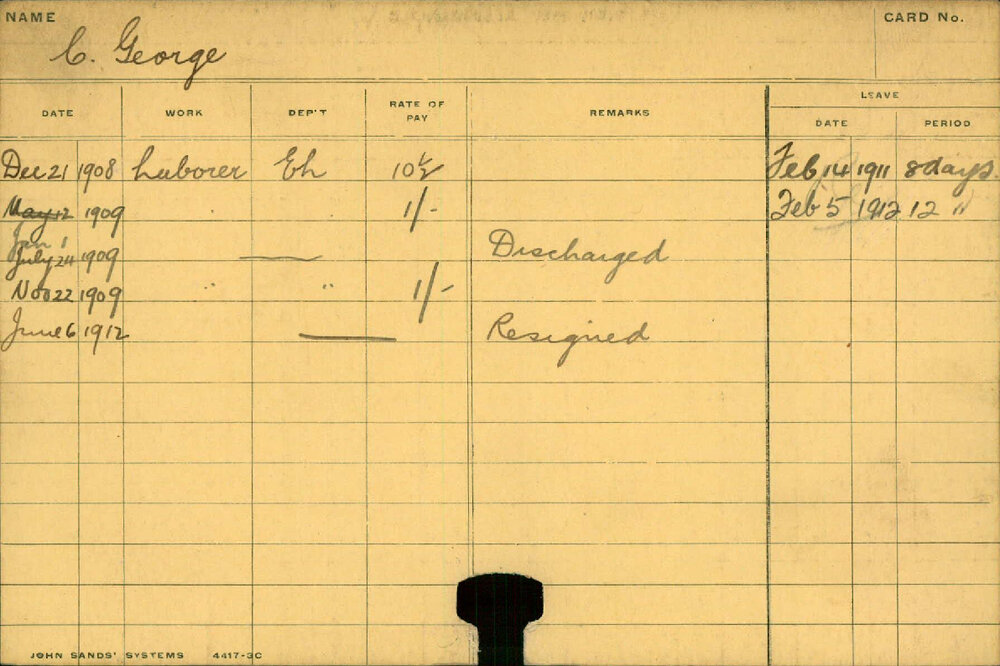 NAME CARD No.
C. George
DATE WORK DEP'T RATE OF PAY REMARKS LEAVE
DATE PERIOD
Dec 21 1908 Laborer Eh 10½ Feb 14 1911 8 days.
May 12 1909 " 1/- Feb 5 1912 12 "
Jan 1
July 24 1909 —— Discharged
Nov 22 1909 " " 1/-
June 6 1912 —— Resigned
JOHN SANDS' SYSTEMS 4417-3C